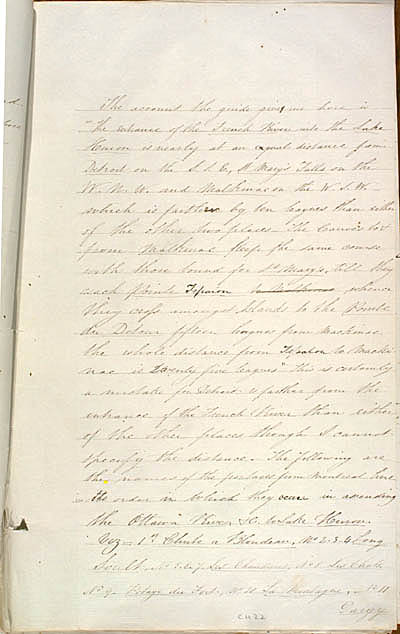 The account the guide gives me here is
"the entrance of the French River into the Lake
Huron is nearly at an equal distance from
Detroit on the S.S.E, St Mary's Falls on the
W.N.W. and Makinac on the W.S.W.
which is farther by ten leagues than either
of the other two places. The Canoes
from Makinac keep the same course
with those bound for St. Mary's, till they
reach Pointe Tessalon whence
they cross amongst Islands to the Pointe
du Detour fifteen leagues from Mackinac
the whole distance from Tessalon to Macki-
nac is Twenty five leagues" this is certainly
a mistake for Detroit is farther from the
entrance of the French River than either
of the other places though I cannot
specify the distance. The following are
the names of the portages from Montreal here
the order in which they occur in ascending
the Ottawa River &c. to Lake Huron.
Viz- 1st Chute a Blondeau, No 2-3-4 Long
Sault, Les Chaudieres, No 8 Les Chats
No 9- Portage du Fort, No 10 La Montagne, No 11
Dargy
CH22